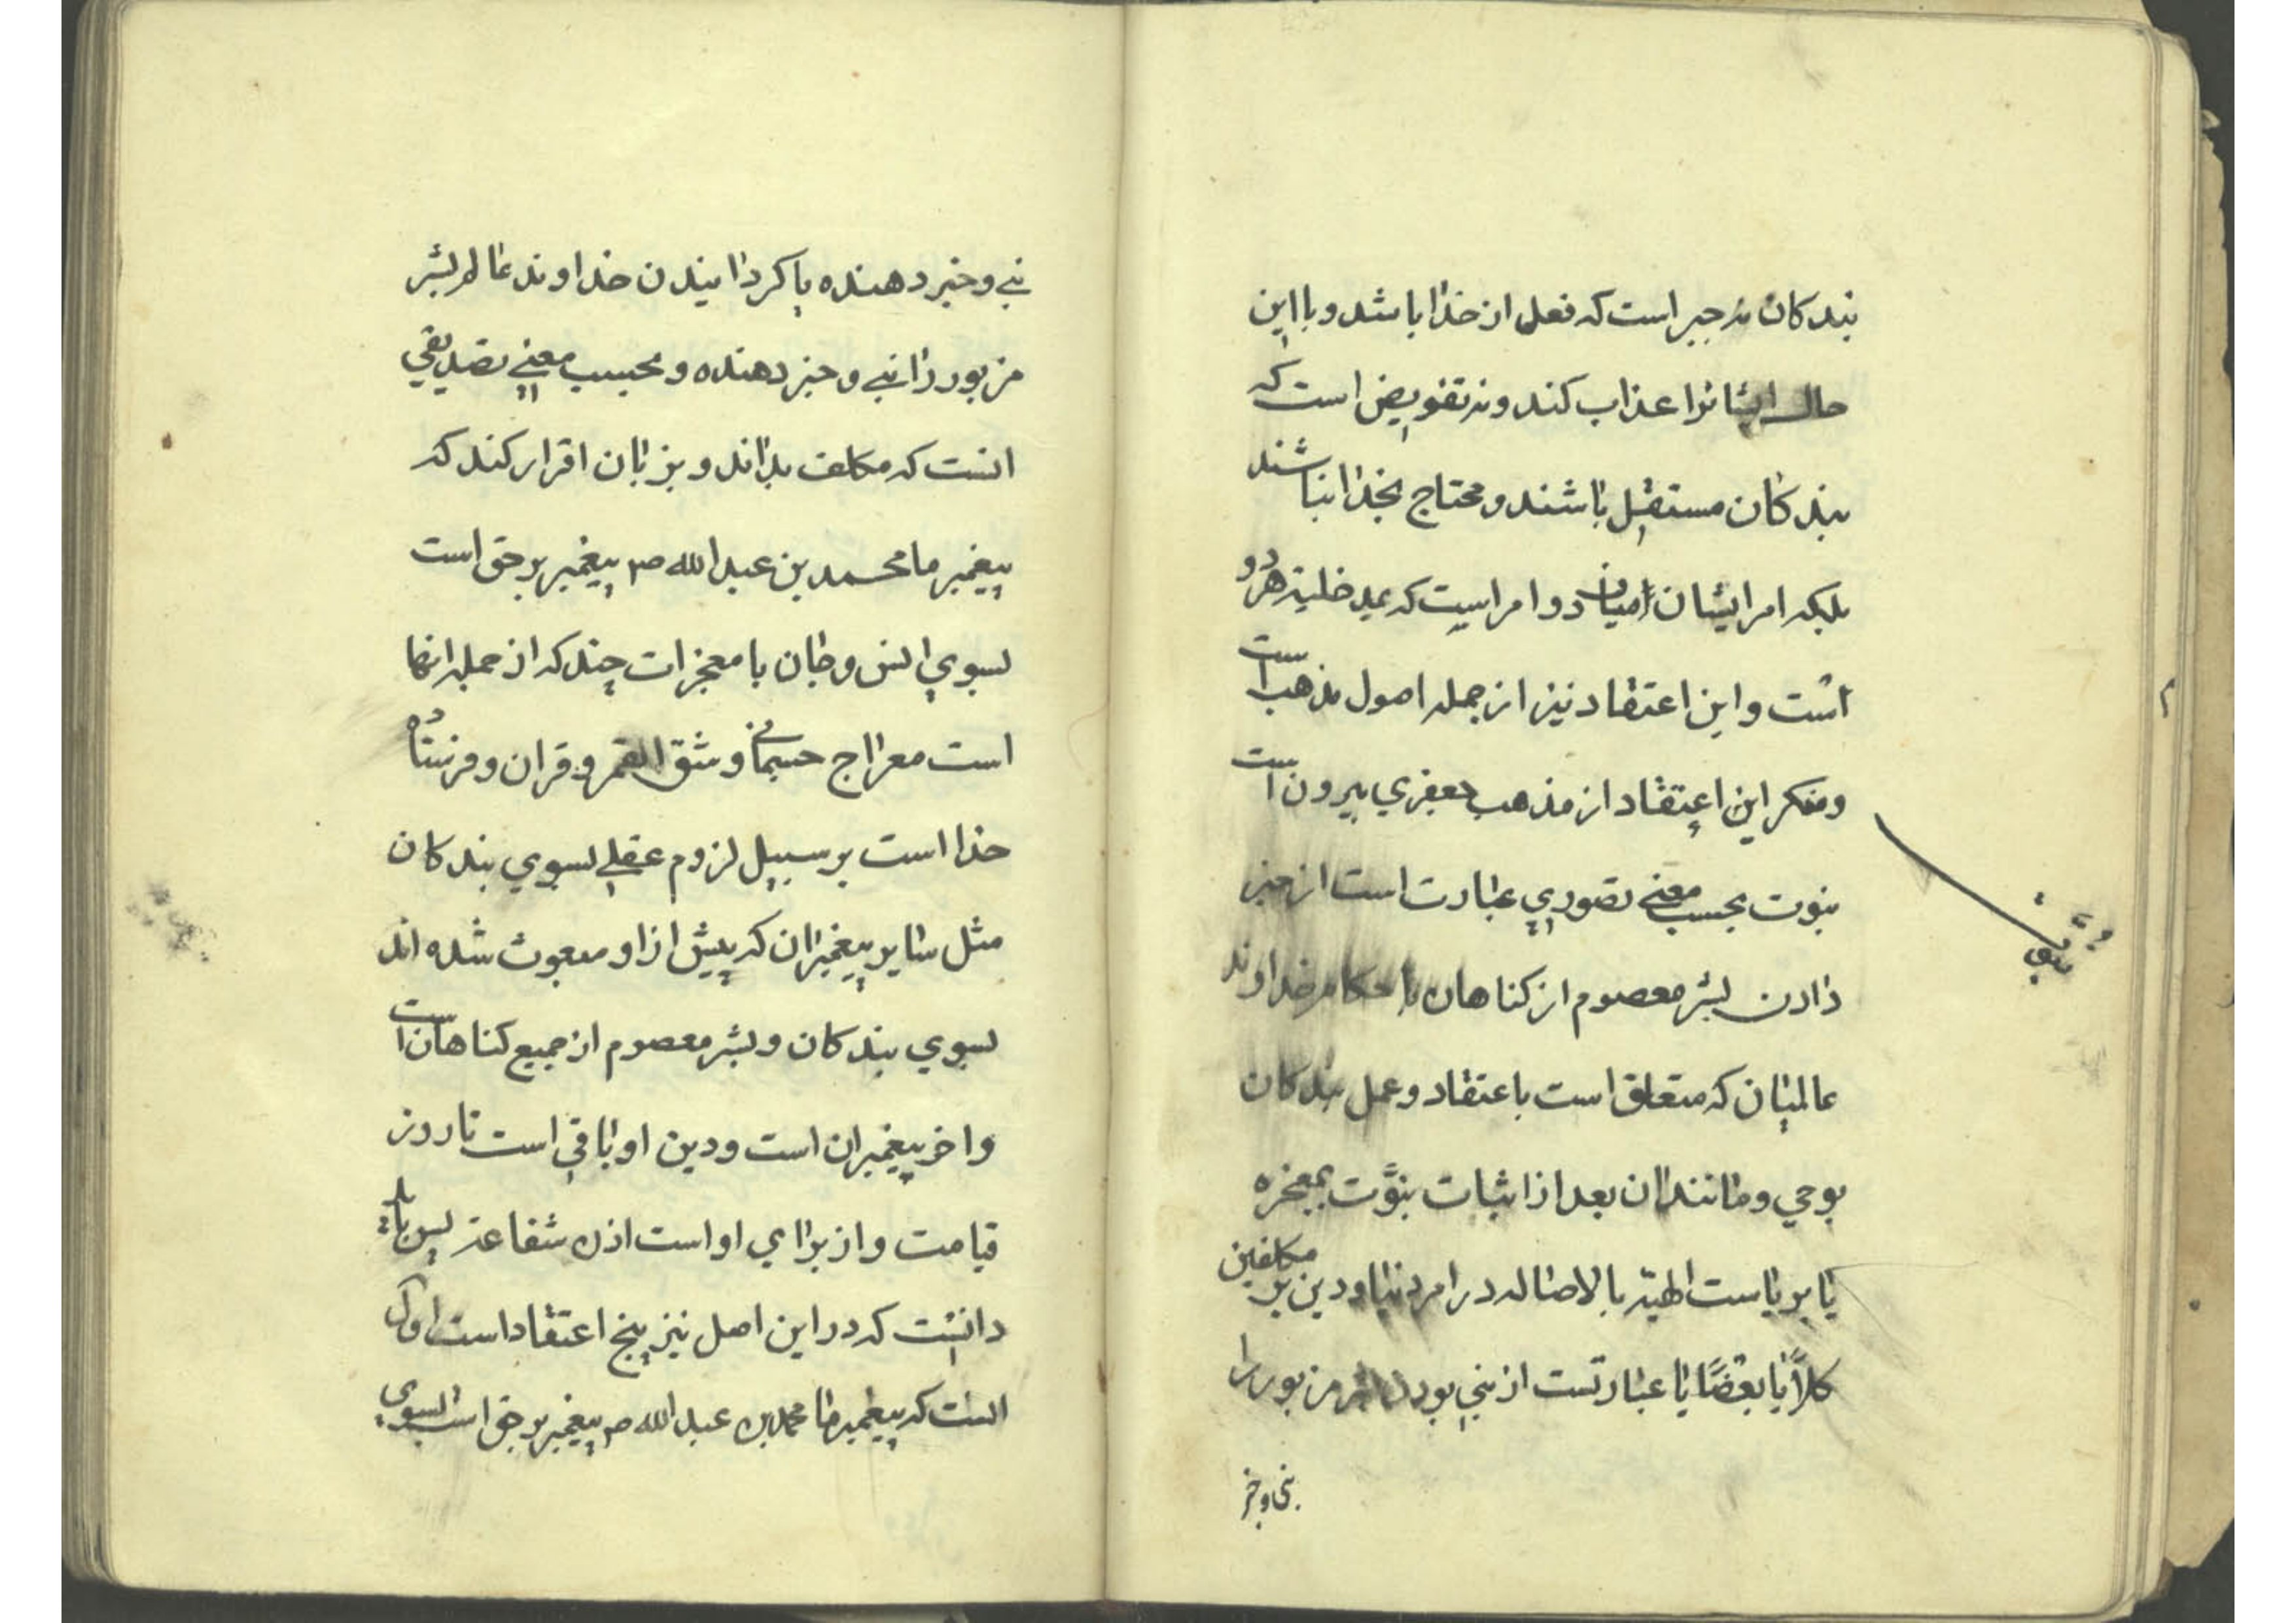 بندکان نه جبر است که فعل از خدا باشد و با این
حال ایشانرا عذاب کند و نه تفویض است که
بندکان مستقل باشند و محتاج بخدا نباشند
بلکه امر ایشان میان دو امر است که عید خلیة هر دو
است و این اعتقاد نیز از جمله اصول مذهب است
و منکر این اعتقاد از مذهب جعفری بیرون است
نبوت بحسب معنی تصوری عبارت است از خبر
دادن بشر معصوم از کناهان با حکام خداوند
عالمیان که متعلق است باعتقاد و عمل بندکان
بوحی و مانند ان بعد از اثبات نبوّت بمعجزه
یا بریاست الهیّه بالاصاله در امر دنیا و دین بر مکلفین
کلاًّ یا بعضًا یا عبارتست از نبی بودن بشر مزبور را
نبی و خبر
نبی و خبر دهنده یا کردانیدن خداوند عالم بشر
مزبور را نبی و خبر دهنده و بحسب معنی تصدیقی
انست که مکلف بداند و بزبان اقرار کند که
پیغمبر ما محمد بن عبدالله ص پیغمبر بر حق است
بسوی انس و جان با معجزات چند که از جمله انها
است معراج جسمانی و شق القمر و قران و فرستاده
خدا است بر سبیل لزوم عقلی بسوی بندکان
مثل سایر پیغمبران که پیش از او مبعوث شده اند
بسوی بندکان و بشر معصوم از جمیع کناهان است
و اخر پیغمبران است و دین او باقی است تا روز
قیامت و از برای او است اذن شفاعة پس باید
دانست که در این اصل نیز پنج اعتقاد است اول
انست که پیغمبر ما محمد بن عبدالله ص پیغمبر بر حق است بسوی